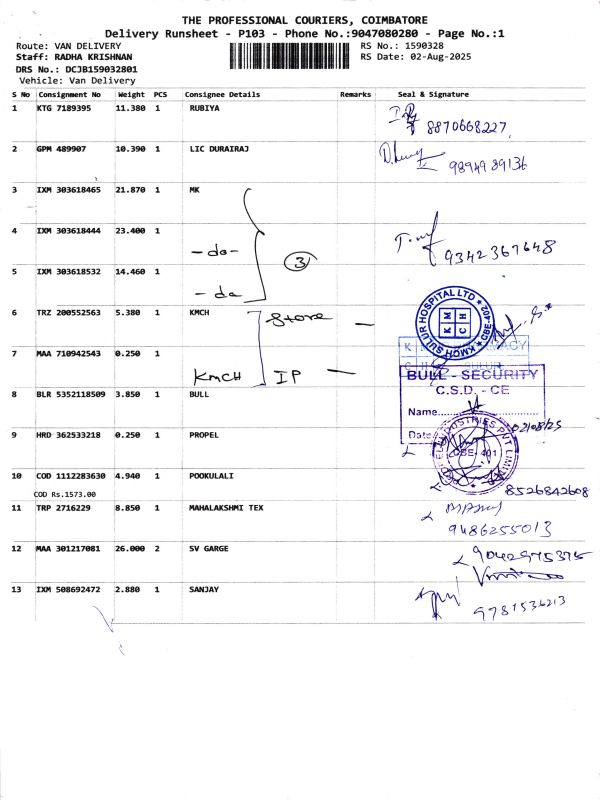 THE PROFESSIONAL COURIERS, COIMBATORE
Delivery Runsheet - P103 - Phone No.:9047080280 - Page No.:1
Route: VAN DELIVERY
RS No.: 1590328
Staff: RADHA KRISHNAN
RS Date: 02-Aug-2025
DRS No.: DCJB159032801
Vehicle: Van Delivery
S No Consignment No Weight PCS Consignee Details Remarks Seal & Signature
1 KTG 7189395 11.380 1 RUBIYA
8870668227
2 GPM 489907 10.390 1 LIC DURAIRAJ
9894989136
3 IXM 303618465 21.870 1 MK
4 IXM 303618444 23.400 1
-do- 3 9342367648
5 IXM 303618532 14.460 1
-do
6 TRZ 200552563 5.380 1 KMCH Store -
KMCH SULUR HOSPITAL LTD
CBE-402
K M C H
7 MAA 710942543 0.250 1
KMCH IP -
BULL - SECURITY
C.S.D. - CE
8 BLR 5352118509 3.850 1 BULL
Name
02/08/25
Date
9 HRD 362533218 0.250 1 PROPEL
INDUSTRIES PVT LIMITED
CBE- 401
10 COD 1112283630 4.940 1 POOKULALI
8526842608
COD Rs.1573.00
11 TRP 2716229 8.850 1 MAHALAKSHMI TEX
9486255013
12 MAA 301217081 26.000 2 SV GARGE
9042975375
13 IXM 508692472 2.880 1 SANJAY
9781536213